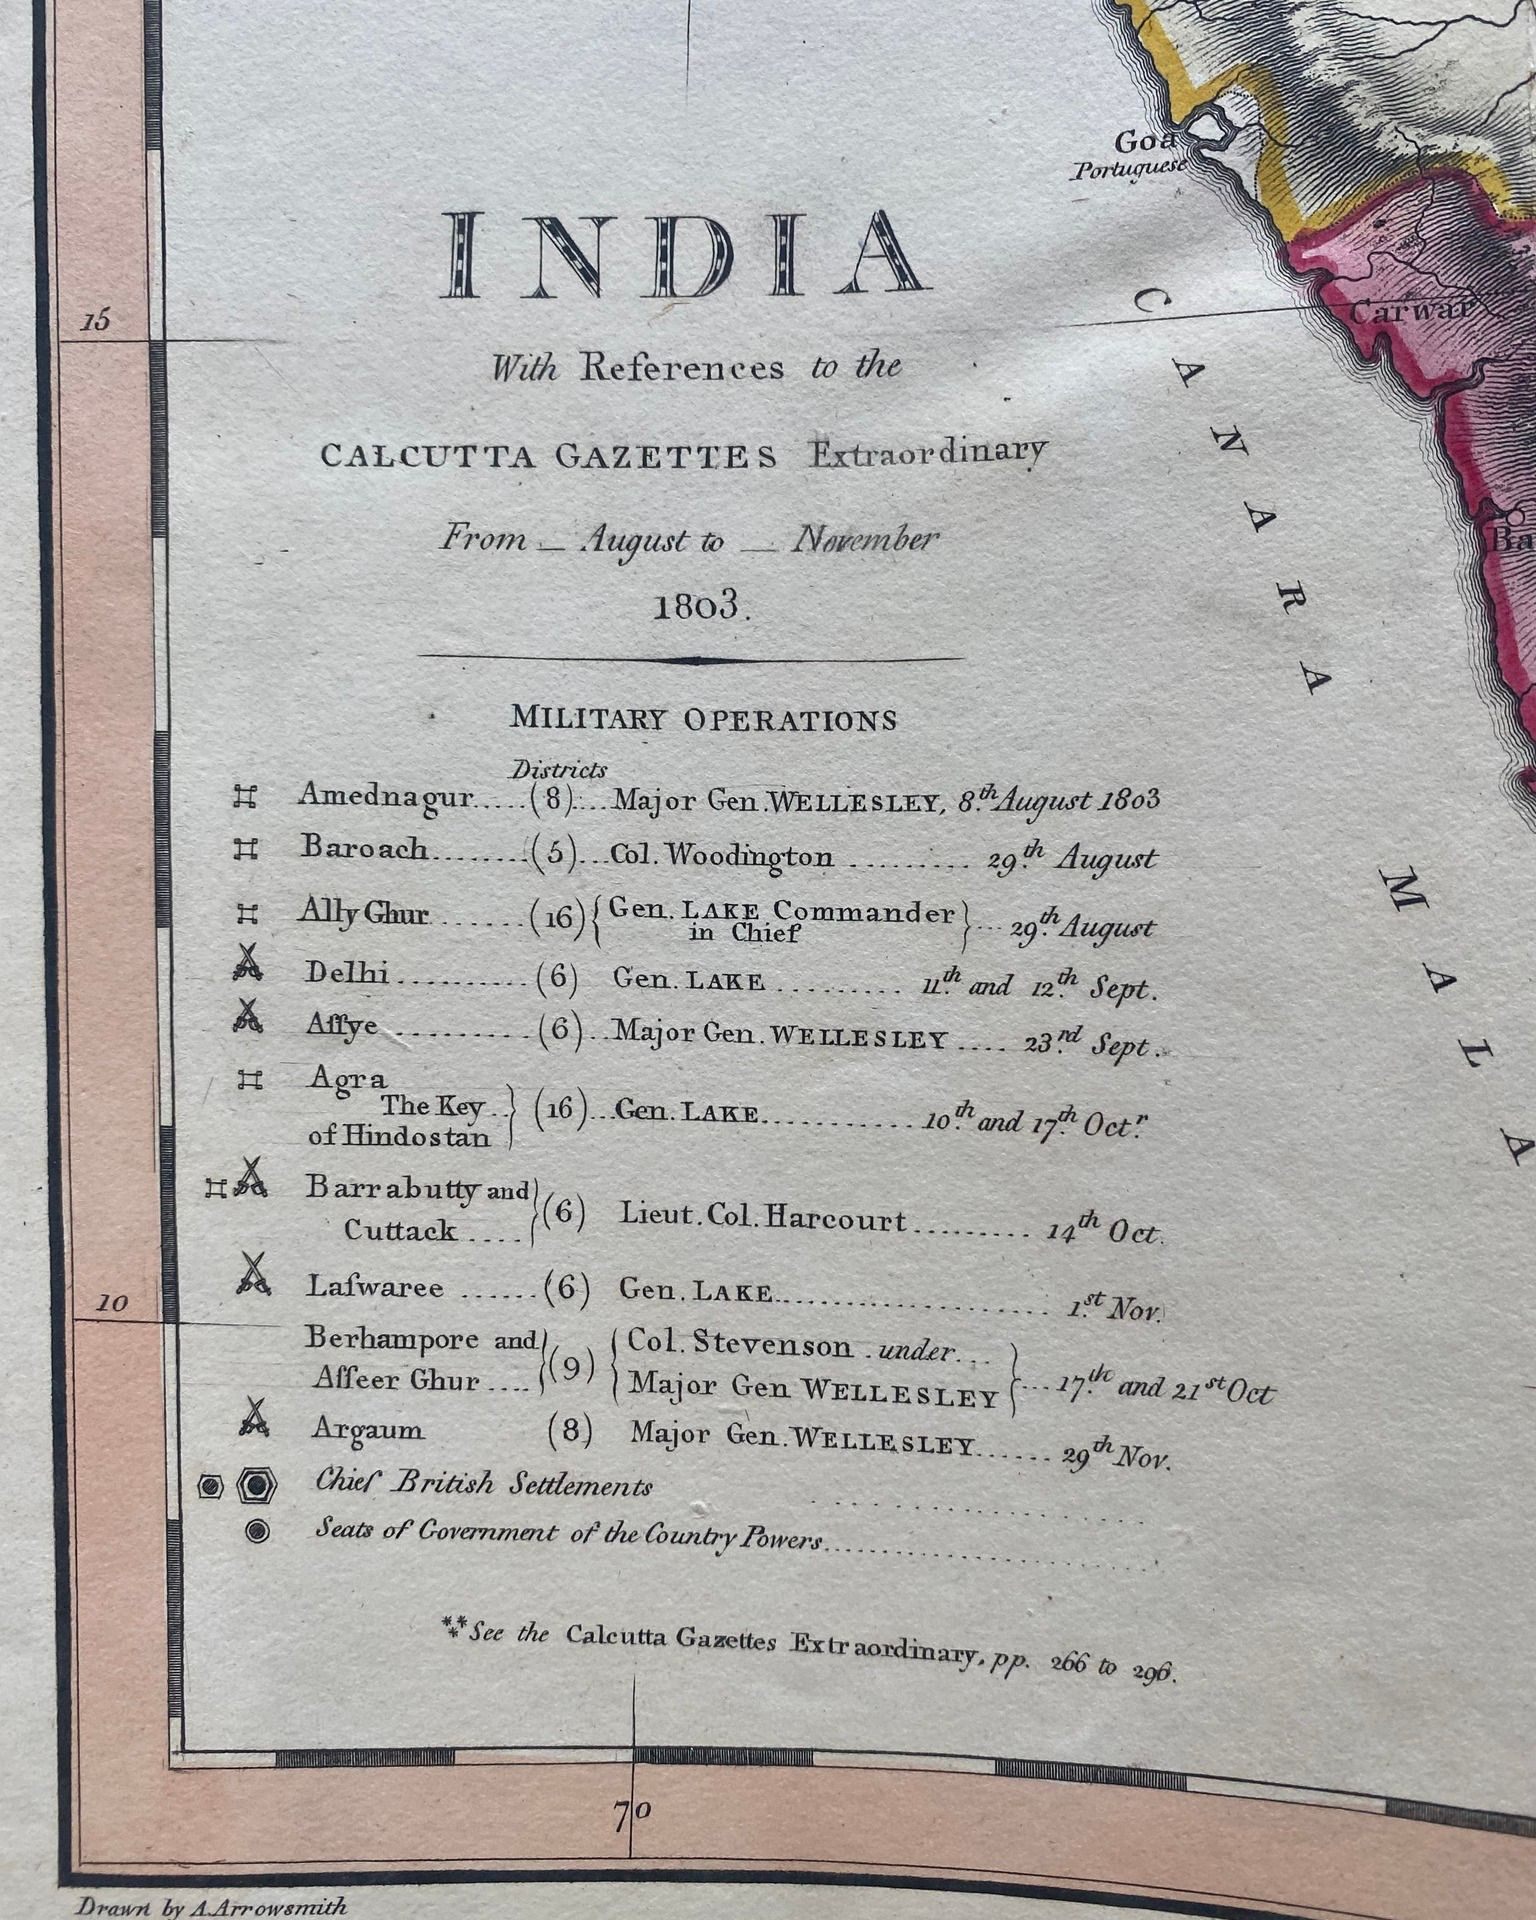 Goa
Portuguese
INDIA
15
Carwar
With References to the
CALCUTTA GAZETTES Extraordinary
From — August to — November
1803.
CANARA
MILITARY OPERATIONS
Districts
Amednagur.....(8)....Major Gen. WELLESLEY, 8.th August 1803
Baroach........(5)...Col. Woodington ......... 29.th August
Ally Ghur.......(16){Gen. LAKE Commander}... 29.th August
in Chief
Delhi..........(6) Gen. LAKE ......... 11.th and 12.th Sept.
Aſsye ..........(6)..Major Gen. WELLESLEY .... 23.rd Sept.
Agra
The Key..} (16)...Gen. LAKE............ 10.th and 17.th Oct.r
of Hindostan
Barrabutty and
Cuttack ....}(6) Lieut. Col. Harcourt......... 14th Oct.
Laſwaree ......(6) Gen. LAKE..................... 1.st Nov.
10
Berhampore and} (9) {Col. Stevenson . under...
Aſseer Ghur ....} {Major Gen WELLESLEY}... 17.th and 21st Oct
Argaum (8) Major Gen. WELLESLEY...... 29th Nov.
Chief British Settlements
Seats of Government of the Country Powers..........................
MALA
⁂ See the Calcutta Gazettes Extraordinary, pp. 266 to 296.
70
Drawn by A. Arrowsmith